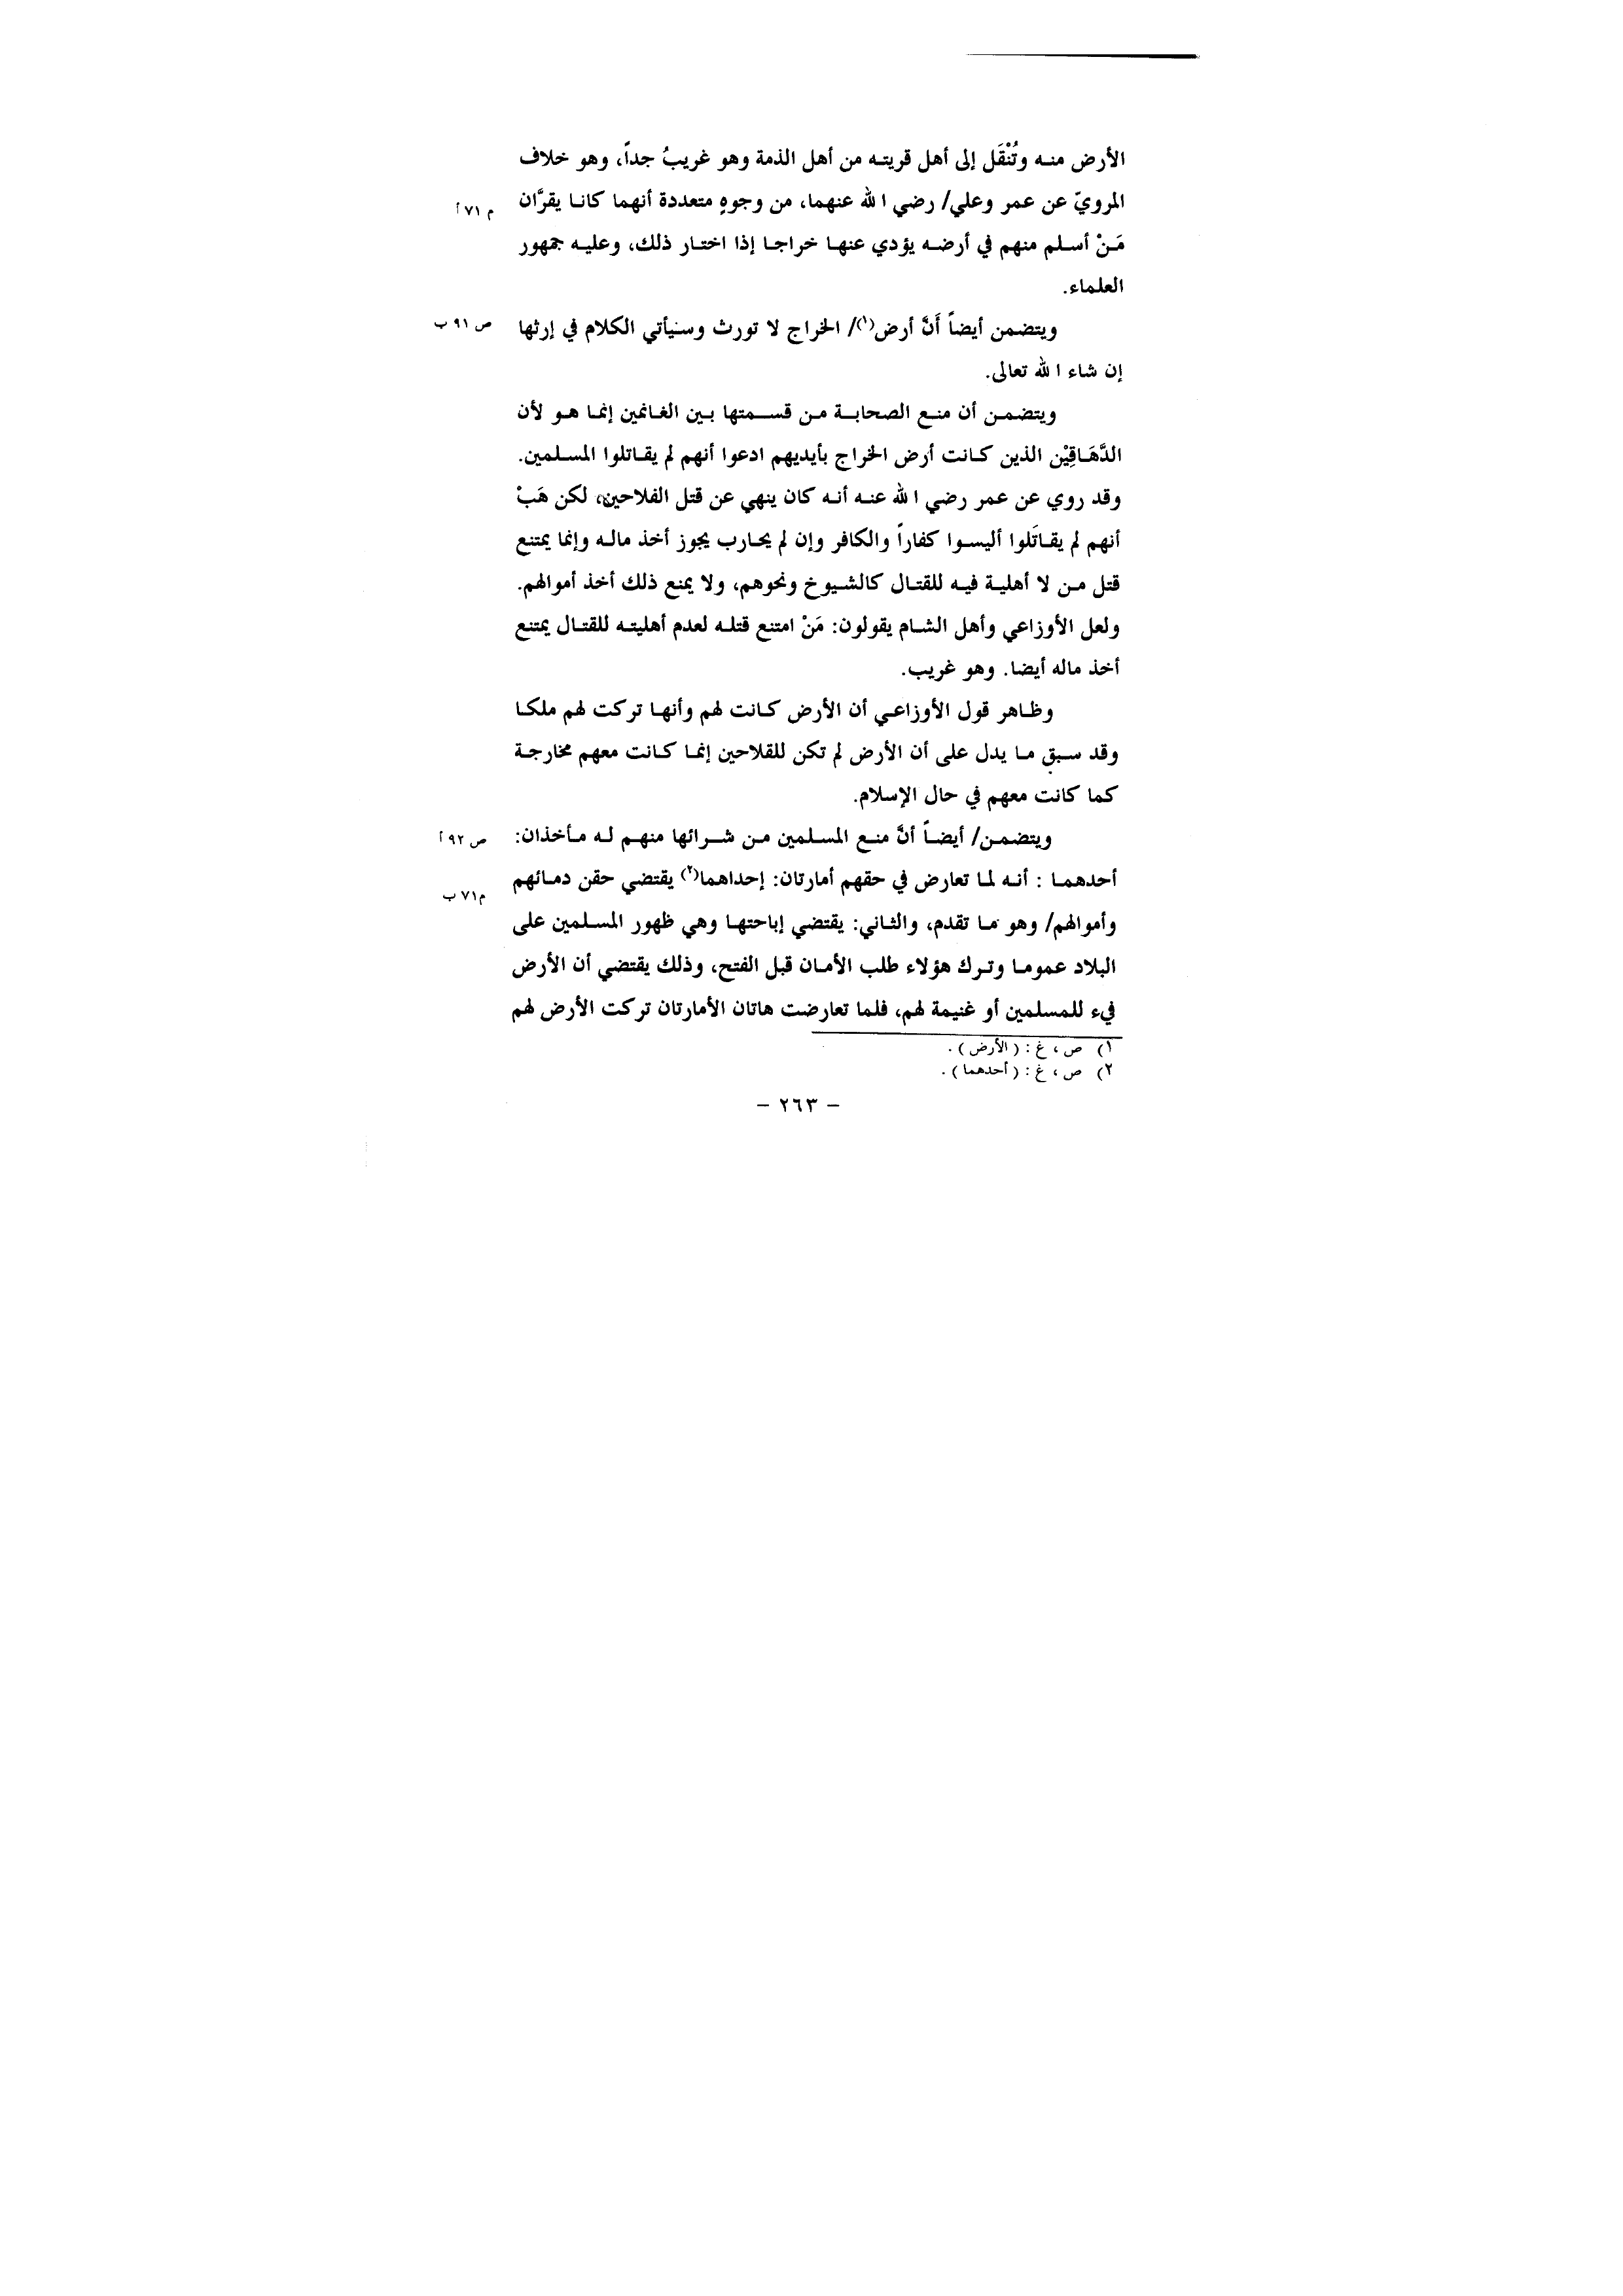 الأرض منه وتُنْقَل إلى أهل قريته من أهل الذمة وهو غريبُ جداً، وهو خلاف
المرويّ عن عمر وعلي/ رضي الله عنهما، من وجوهٍ متعددة أنهما كانا يقرَّان
م ٧١ أ
مَنْ أسلم منهم في أرضه يؤدي عنها خراجا إذا اختار ذلك، وعليه جمهور
العلماء.
ويتضمن أيضاً أَنَّ أرض(١)/ الخراج لا تورث وسيأتي الكلام في إرثها
ص ٩١ ب
إن شاء الله تعالى.
ويتضمن أن منع الصحابة من قسمتها بين الغانمين إنما هو لأن
الدَّهَاقِيْن الذين كانت أرض الخراج بأيديهم ادعوا أنهم لم يقاتلوا المسلمين.
وقد روي عن عمر رضي الله عنه أنه كان ينهي عن قتل الفلاحين، لكن هَبْ
أنهم لم يقاتَلوا أليسوا كفاراً والكافر وإن لم يحارب يجوز أخذ ماله وإنما يمتنع
قتل من لا أهلية فيه للقتال كالشيوخ ونحوهم، ولا يمنع ذلك أخذ أموالهم.
ولعل الأوزاعي وأهل الشام يقولون: مَنْ امتنع قتله لعدم أهليته للقتال يمتنع
أخذ ماله أيضا. وهو غريب.
وظاهر قول الأوزاعي أن الأرض كانت لهم وأنها تركت لهم ملكا
وقد سبق ما يدل على أن الأرض لم تكن للقلاحين إنما كانت معهم مخارجة
كما كانت معهم في حال الإسلام.
ويتضمن/ أيضاً أنَّ منع المسلمين من شرائها منهم له مأخذان:
ص ٩٢ أ
أحدهما : أنه لما تعارض في حقهم أمارتان: إحداهما(٢) يقتضي حقن دمائهم
م٧١ ب
وأموالهم/ وهو ما تقدم، والثاني: يقتضي إباحتها وهي ظهور المسلمين على
البلاد عموما وترك هؤلاء طلب الأمان قبل الفتح، وذلك يقتضي أن الأرض
فيء للمسلمين أو غنيمة لهم، فلما تعارضت هاتان الأمارتان تركت الأرض لهم
١) ص ، غ : ( الأرض ) .
٢) ص ، غ : ( أحدهما ) .
– ٢٦٣ –